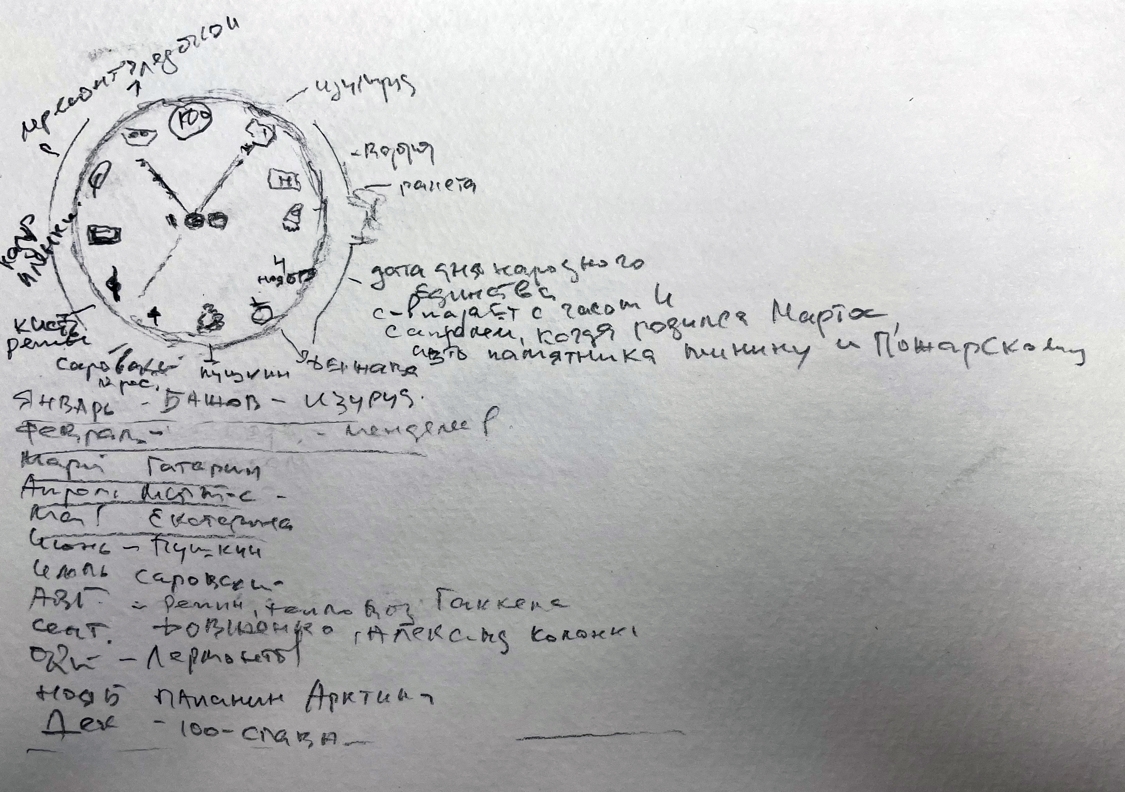 изумруд
ракета
4
нояб
дата дня народного
единства
совпадает с часом и
апрелем, когда родился Мартос,
авт. памятника Минину и Пожарскому
кисть
репин
пушкин
держава
Январь - Бажов - изумруд.
Февраль - менделеев
Март Гагарин
Апрель Мартос -
Май Екатерина
Июнь - Пушкин
Июль Саровский
Авг. - репин, тепловоз Гаккеля
Сент. Довженко, Александ колонна
Окт - Лермонтов
нояб папанин Арктика
Дек - 100-слава